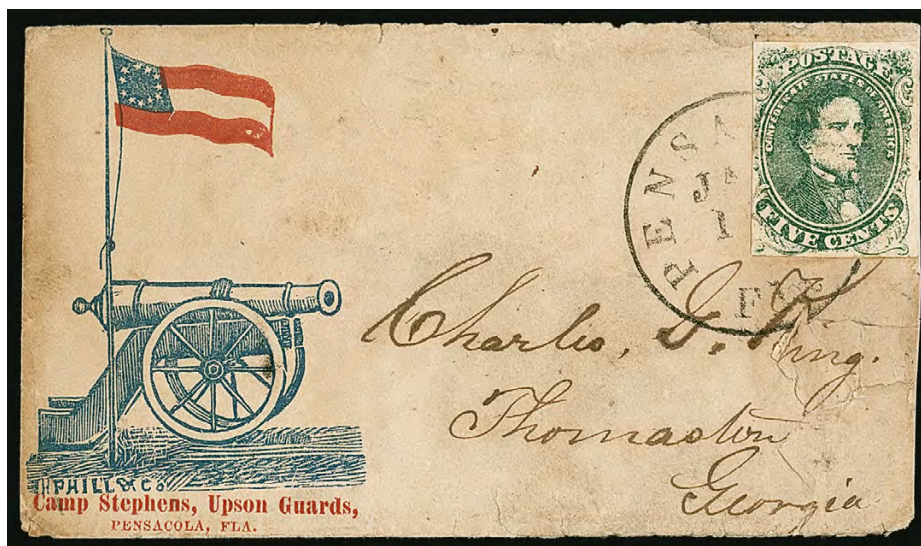 POSTAGE
CONFEDERATE STATES OF AMERICA
FIVE CENTS
PENSA
JA
1
F
Charles. G. King.
Thomaston
Georgia
PHILL & Co
Camp Stephens, Upson Guards,
PENSACOLA, FLA.